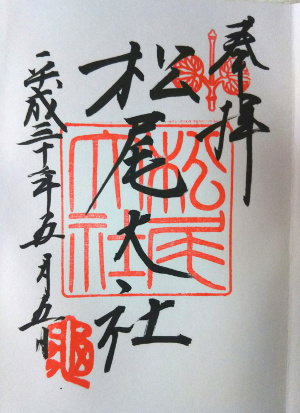 奉拝
松尾大社
平成三十年五月五日
松尾大社
亀